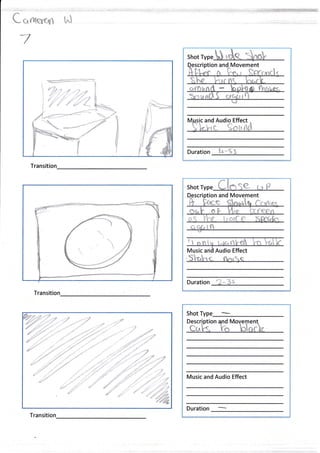 Cameron W
7
Shot Type Wide Shot
Description and Movement
After a few seconds
she turns back
around - typing noises
sounds again
Music and Audio Effect
Static Sound
Duration 4-5s
Transition
Shot Type Close up
Description and Movement
A face slowly comes
out of the screen
as the voice speaks
again
"I only wanted to talk
Music and Audio Effect
Static noise
Duration 2-3s
Transition
Shot Type —
Description and Movement
Cuts to black
Music and Audio Effect
Duration —
Transition